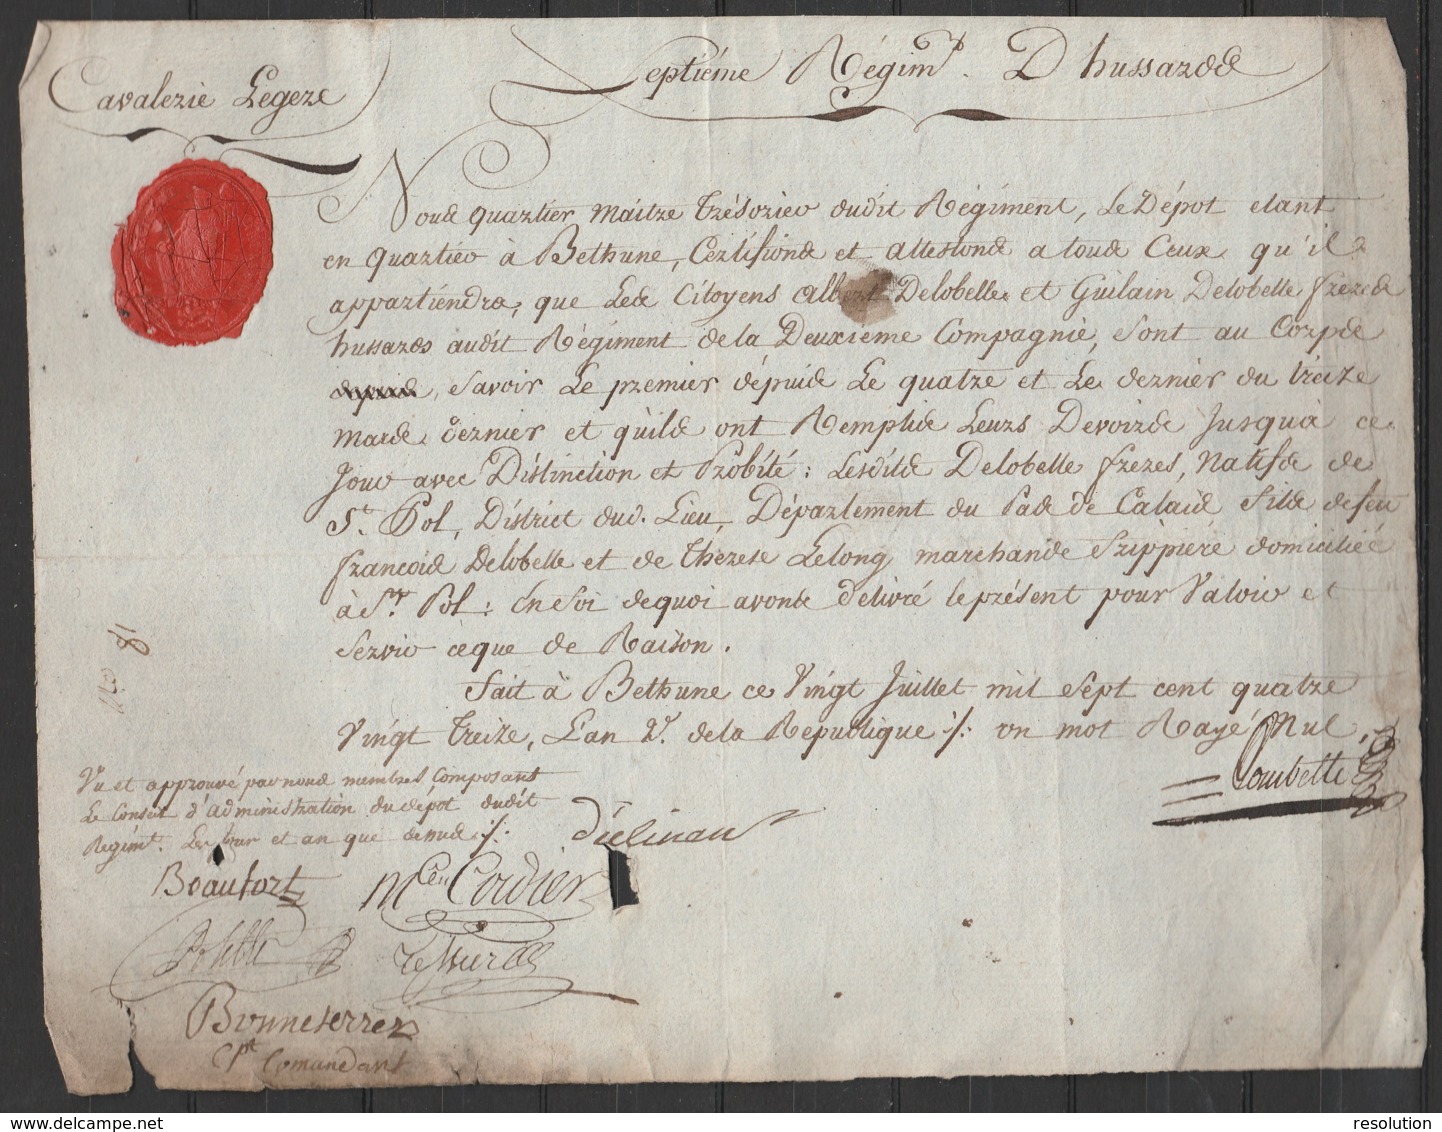 Cavalerie Legere
Septiéme Régimt. D'hussards
Nous Quartier Maitre Trésorier dudit Régiment, Le Dépot etant
en Quartier à Bethune, Certifions et attestons a tous Ceux qu'il
appartiendra, que Les Citoyens Albert Delobelle et Guilain Delobelle freres
hussards audit Régiment de la Deuxieme Compagnie, sont au Corps
savoir Le premier dépuis Le quatre et Le dernier du treize
Mars dernier et quils ont Remplis Leurs Devoirs Jusqua ce
Jour avec Distinction et Probité : Lesdits Delobelle freres, Natifs de
St. Pol, District dud. Lieu, Département du Pas de Calais fils de feu
francois Delobelle et de Therese Lelong marchande frippiere domiciliée
à St. Pol : En foi dequoi avons délivré le présent pour Valoir et
Servir ceque de Raison.
Fait à Bethune ce Vingt Juillet mil sept cent quatre
Vingt treize, L'an 2e. de la Republique ./. un mot Rayé Nul.
Combette
Vu et approuvé par nous membres composant
Le Conseil d'administration du dépot dudit
Régimt. Les Jour et an que dessus ./.
Beaufort
Cordier
Bonneserrez
Cpt Comandant
www.delcampe.net
resolution